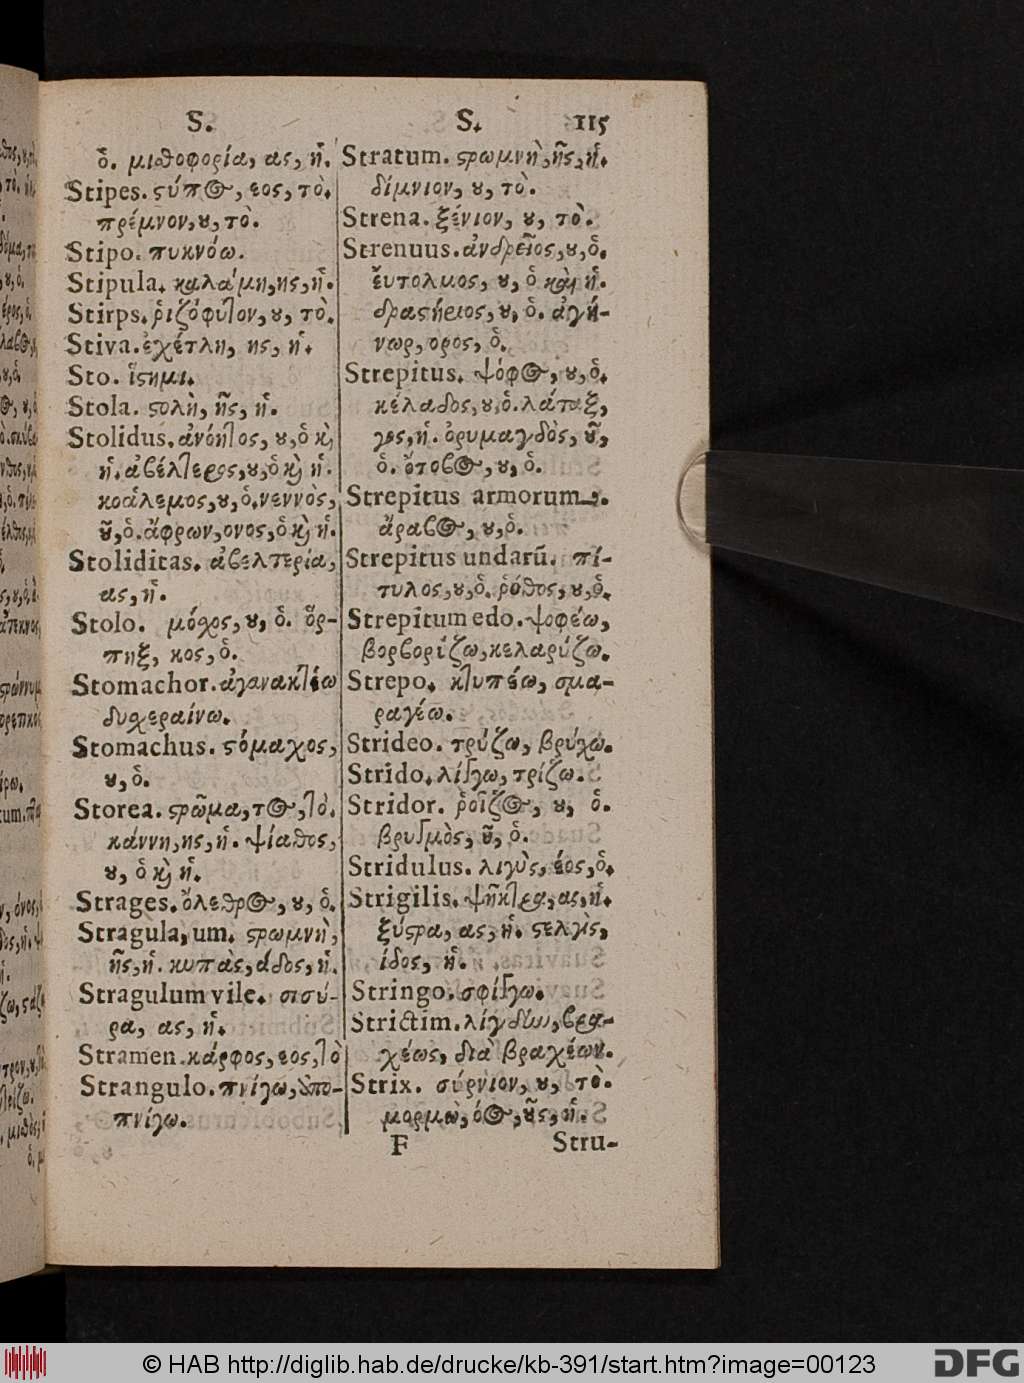 S. S. 115
ὁ. μισθοφορία, ας, ἡ.
Stipes. στύπος, εος, τὸ.
πρέμνον, ου, τὸ.
Stipo. πυκνόω.
Stipula. καλάμη, ης, ἡ.
Stirps. ῥιζόφυτον, ου, τὸ.
Stiva. ἐχέτλη, ης, ἡ.
Sto. ἵστημι.
Stola. στολὴ, ῆς, ἡ.
Stolidus. ἀνόητος, ου, ὁ κὶ
ἡ. ἀβέλτερος, ου, ὁ κὶ ἡ.
κοάλεμος, ου, ὁ. νεννὸς,
οῦ, ὁ. ἄφρων, ονος, ὁ κὶ ἡ.
Stoliditas. ἀβελτερία,
ας, ἡ.
Stolo. μόσχος, ου, ὁ. ὅρ-
πηξ, κος, ὁ.
Stomachor. ἀγανακτέω
δυσχεραίνω.
Stomachus. στόμαχος,
ου, ὁ.
Storea. στρῶμα, τος, τὸ.
κάννη, ης, ἡ. ψίαθος,
ου, ὁ κὶ ἡ.
Strages. ὄλεθρος, ου, ὁ.
Stragula, um. στρωμνὴ,
ῆς, ἡ. κυπὰς, άδος, ἡ.
Stragulum vile. σισύ-
ρα, ας, ἡ.
Stramen. κάρφος, εος, τὸ
Strangulo. πνίγω, ὑπο-
πνίγω.
Stratum. στρωμνὴ, ῆς, ἡ.
δίμνιον, ου, τὸ.
Strena. ξένιον, ου, τὸ.
Strenuus. ἀνδρεῖος, ου, ὁ.
εὔτολμος, ου, ὁ καὶ ἡ.
δραστήριος, ου, ὁ. ἀγή-
νωρ, ορος, ὁ.
Strepitus. ψόφος, ου, ὁ.
κέλαδος, ου, ὁ. λάταξ,
γος, ἡ. ὀρυμαγδὸς, οῦ,
ὁ. ὄτοβος, ου, ὁ.
Strepitus armorum.
ἄραβος, ου, ὁ.
Strepitus undarũ. πί-
τυλος, ου, ὁ. ῥόθος, ου, ὁ.
Strepitum edo. ψοφέω,
βορβορίζω, κελαρύζω.
Strepo. κτυπέω, σμα-
ραγέω.
Strideo. τρύζω, βρύχω.
Strido. λίγγω, τρίζω.
Stridor. ῥοῖζος, ου, ὁ.
βρυγμὸς, οῦ, ὁ.
Stridulus. λιγὺς, έος, ὁ.
Strigilis. ψῆκτρα, ας, ἡ.
ξύστρα, ας, ἡ. στελγὶς,
ίδος, ἡ.
Stringo. σφίγγω.
Strictim. λίγδην, βρα-
χέως, διὰ βραχέων.
Strix. σύρνιον, ου, τὸ.
μορμὼ, όος, οῦς, ἡ.
F Stru-
© HAB http://diglib.hab.de/drucke/kb-391/start.htm?image=00123
DFG